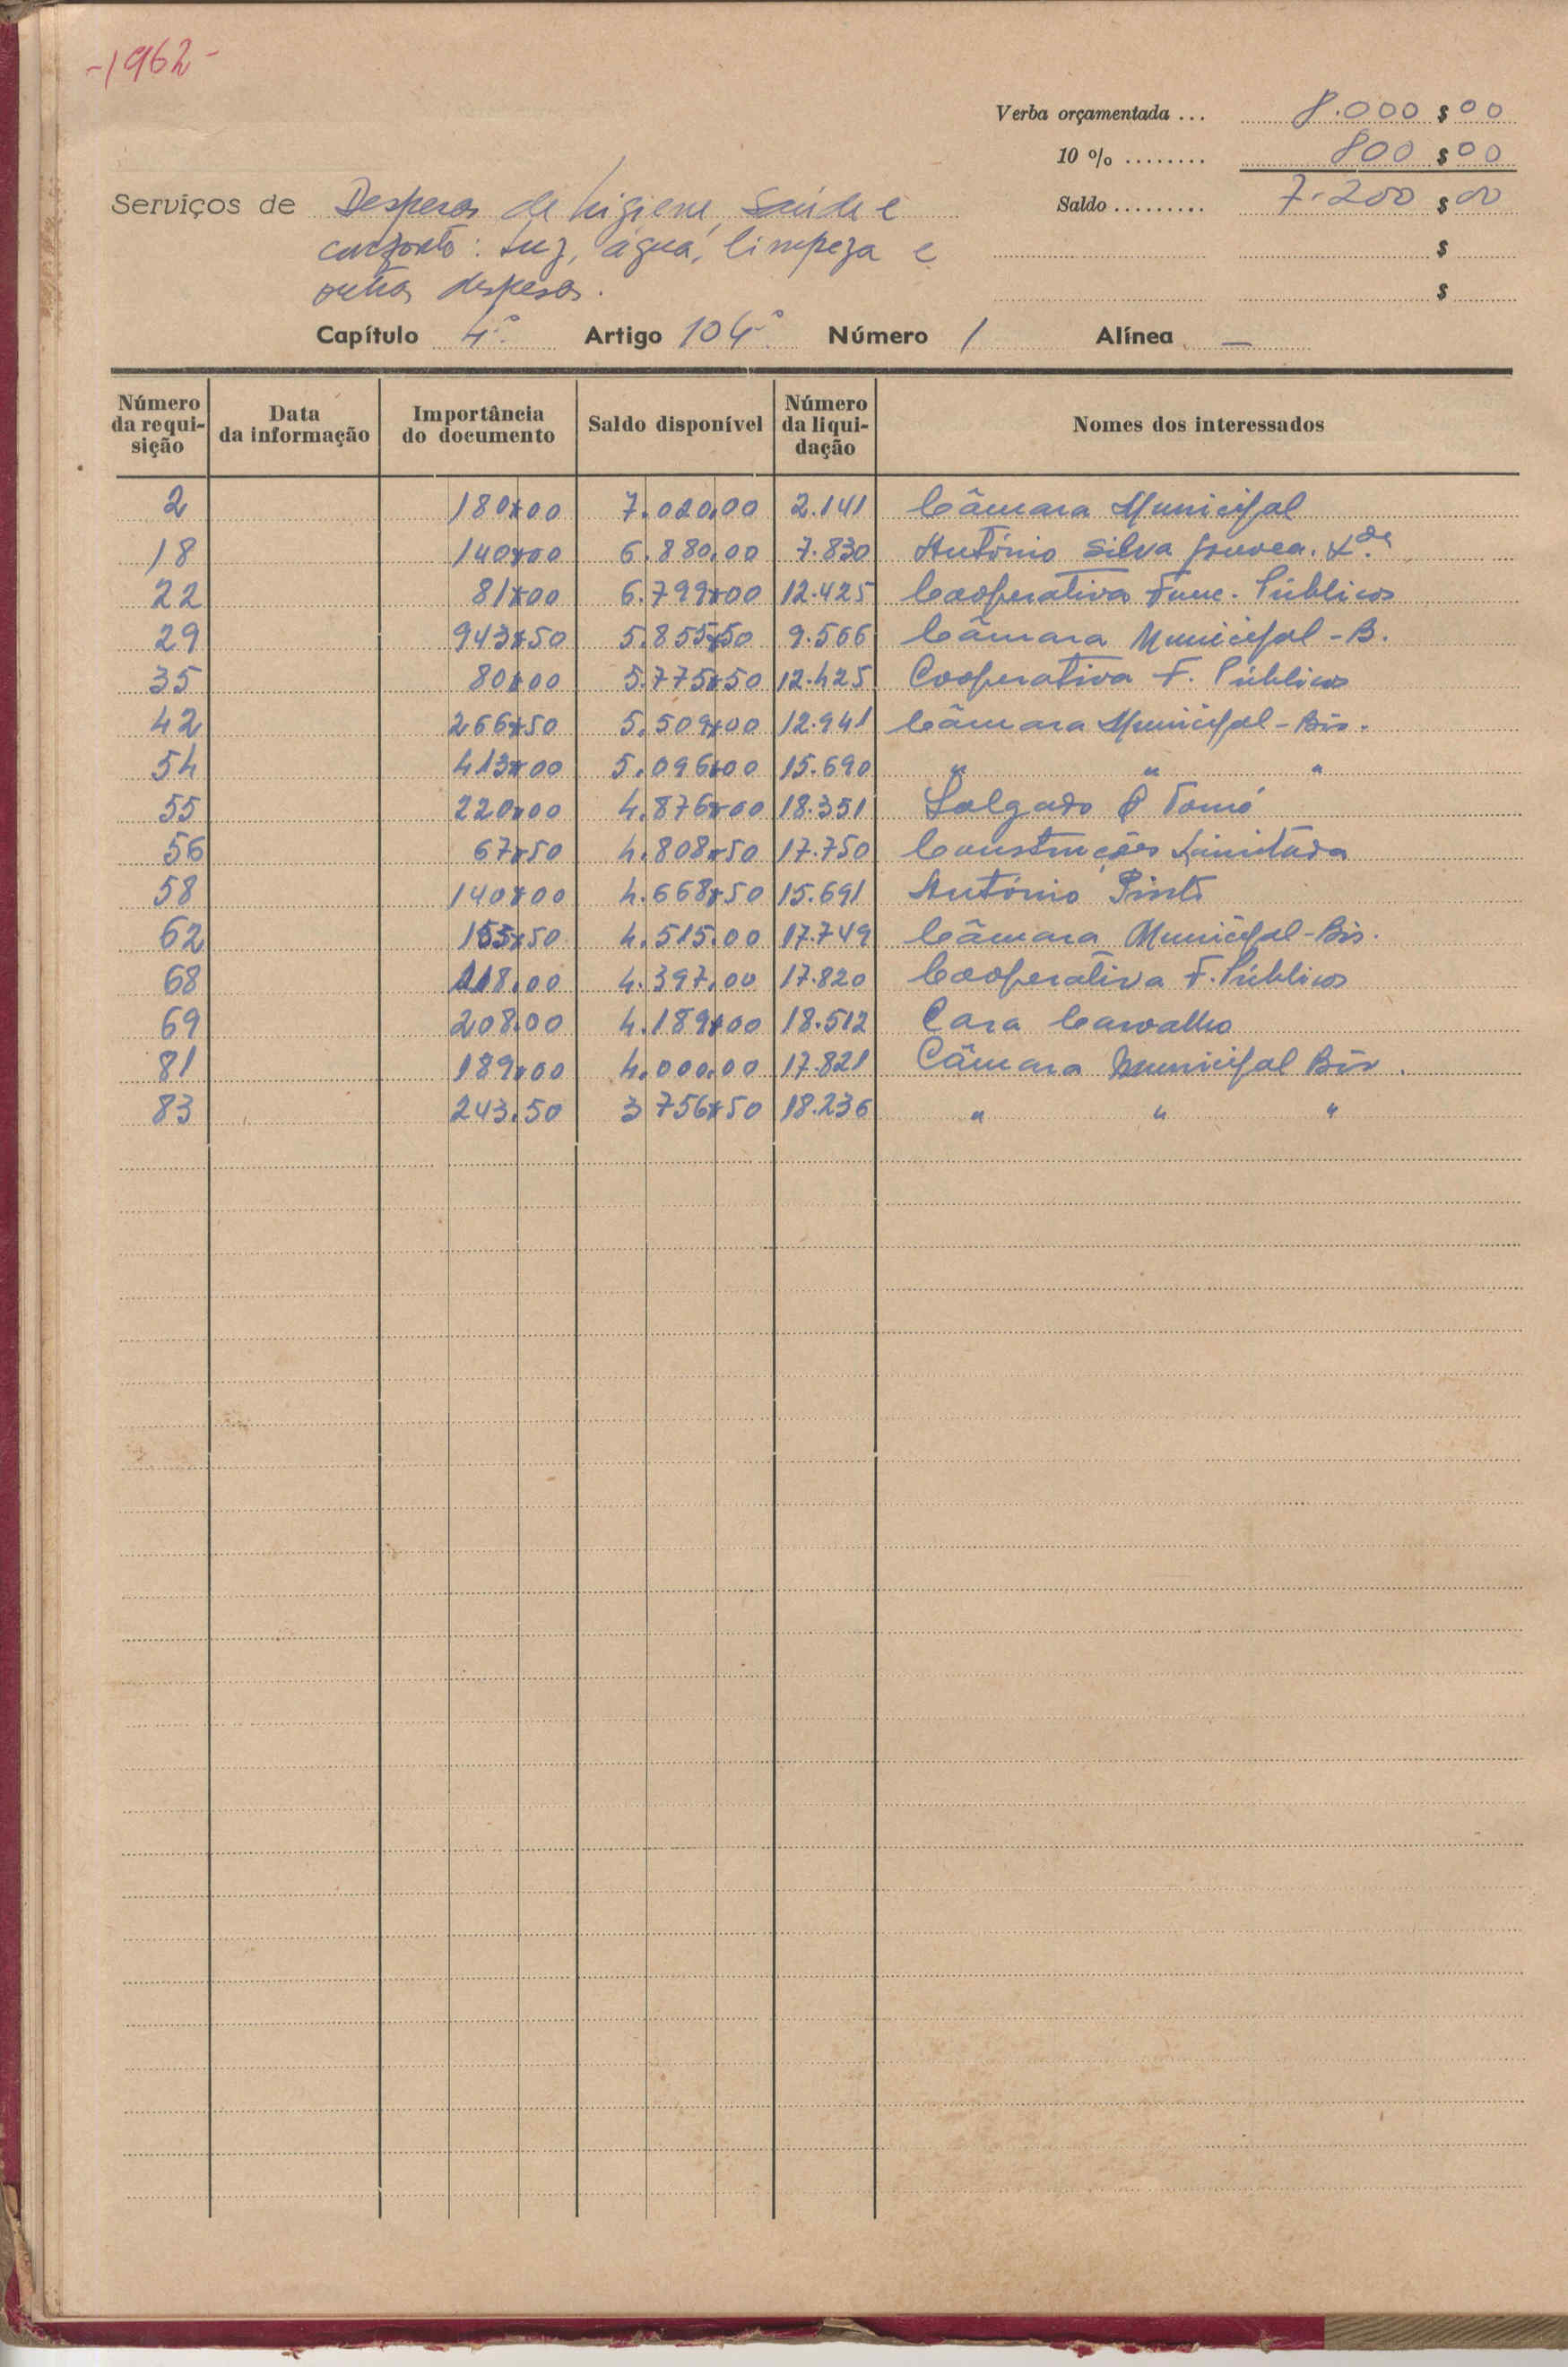 -1962-
Verba orçamentada ... 8.000 $ 00
10 % ........ 800 $ 00
Saldo ......... 7.200 $ 00
$
$
Serviços de Despesas de higiene, Saúde e
conforto: Luz, água, limpeza e
outras despesas.
Capítulo 4.º Artigo 104.º Número 1 Alínea —
Número da requi-sição Data da informação Importância do documento Saldo disponível Número da liqui-dação Nomes dos interessados
2 180$00 7.020,00 2.141 Câmara Municipal
18 140$00 6.880,00 7.830 António Silva Gouvea, Lda
22 81$00 6.799$00 12.425 Cooperativa Func. Públicos
29 943$50 5.855$50 9.566 Câmara Municipal - B.
35 80$00 5.775$50 12.425 Cooperativa F. Públicos
42 266$50 5.509$00 12.941 Câmara Municipal - Bis.
54 413$00 5.096$00 15.690 " " "
55 220$00 4.876$00 18.351 Salgado & Tomé
56 67$50 4.808$50 17.750 Construções Limitada
58 140$00 4.668$50 15.691 António Pinto
62 $50 4.515.00 17.749 Câmara Municipal - Bis.
68 118.00 4.397,00 17.820 Cooperativa F. Públicos
69 208.00 4.189$00 18.512 Casa Carvalho
81 189$00 4.000.00 17.821 Câmara Municipal Bis.
83 243.50 3 756$50 18.236 " " "